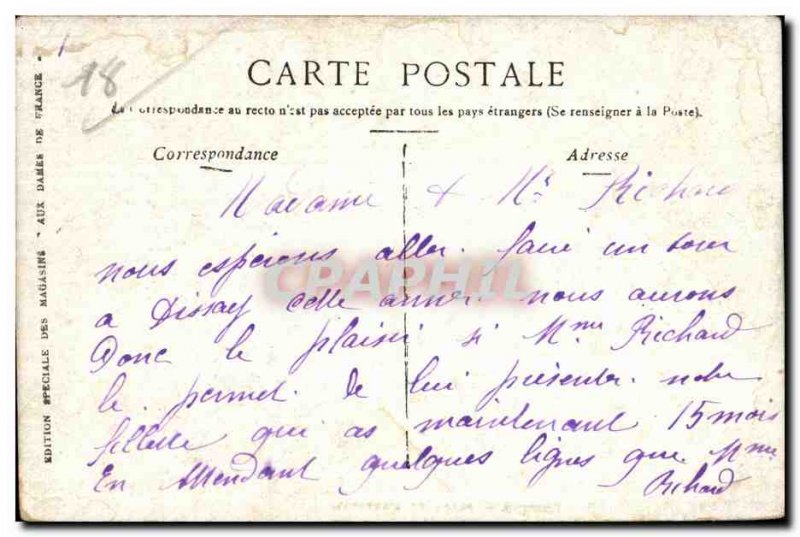 18
CARTE POSTALE
La Correspondance au recto n'est pas acceptée par tous les pays étrangers (Se renseigner à la Poste).
Correspondance
Adresse
Madame & Mr Richard
nous espérons aller faire un tour
a Dissay cette année nous aurons
Donc le plaisir si Mme Richard
le permet de lui présenter notre
fillette qui as maintenant 15 mois
En Attendant quelques lignes que Mme
Richard
EDITION SPECIALE DES MAGASINS "AUX DAMES DE FRANCE"
CPAPHIL